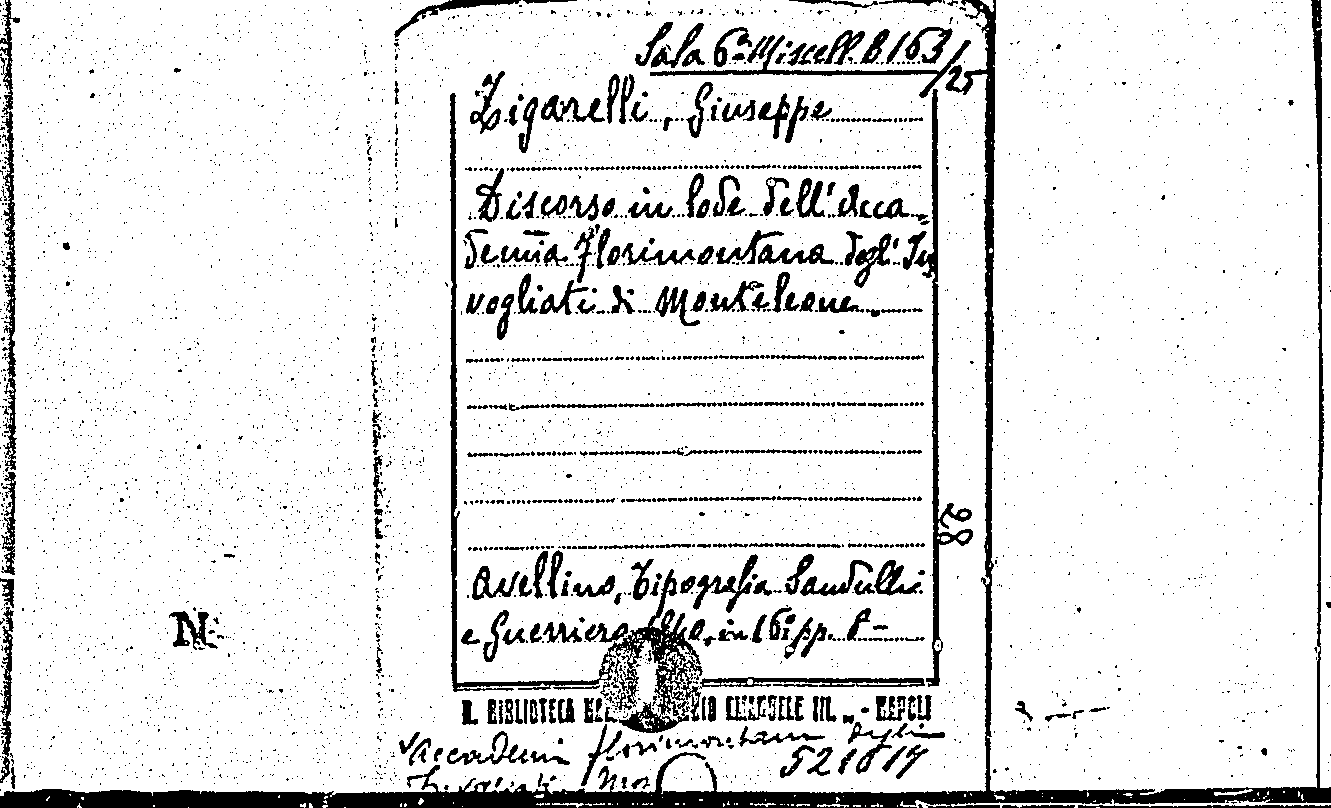 Sala 6ª Miscell. B 163/25
Zigarelli, Giuseppe
Discorso in lode dell'Acca=
demia Florimontana degl' In
vogliati di Monteleone.
Avellino, Tipografia Sandulli
e Guerriero, in 16º, pp. 8 -
28
N
R. BIBLIOTECA EMANUELE III. „ - NAPOLI
Accademia Florimontana degli
521617